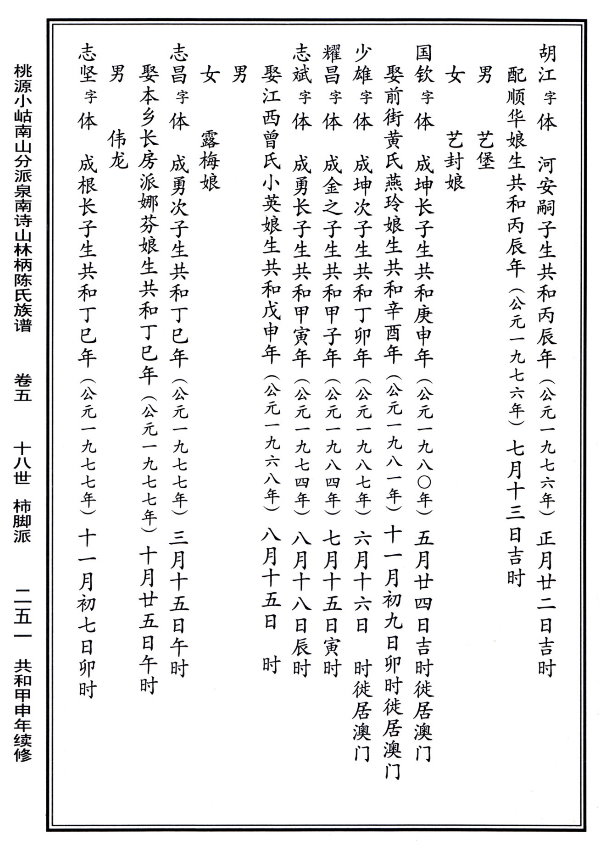 胡江 字 体 河安嗣子生共和丙辰年（公元一九七六年）正月廿二日吉时
配顺华娘生共和丙辰年（公元一九七六年）七月十三日吉时
男 艺堡
女 艺封娘
国钦 字 体 成坤长子生共和庚申年（公元一九八〇年）五月廿四日吉时徙居澳门
娶前街黄氏燕玲娘生共和辛酉年（公元一九八一年）十一月初九日卯时徙居澳门
少雄 字 体 成坤次子生共和丁卯年（公元一九八七年）六月十六日 时徙居澳门
耀昌 字 体 成金之子生共和甲子年（公元一九八四年）七月十五日寅时
志斌 字 体 成勇长子生共和甲寅年（公元一九七四年）八月十八日辰时
娶江西曾氏小英娘生共和戊申年（公元一九六八年）八月十五日 时
男
女 露梅娘
志昌 字 体 成勇次子生共和丁巳年（公元一九七七年）三月十五日午时
娶本乡长房派娜芬娘生共和丁巳年（公元一九七七年）十月廿五日午时
男 伟龙
志坚 字 体 成根长子生共和丁巳年（公元一九七七年）十一月初七日卯时
桃源小岵南山分派泉南诗山林柄陈氏族谱 卷五 十八世 柿脚派 二五一 共和甲申年续修